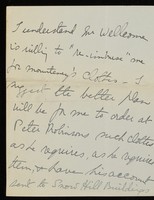 I understand Mr Wellcome
is willing to "re-imburse" me
for mounteney's clothes - I
suggest the better plan
will be for me to order at
Peter Robinsons such clothes
as he requires, as he requires
them, & have his account
sent to Snow Hill Buildings